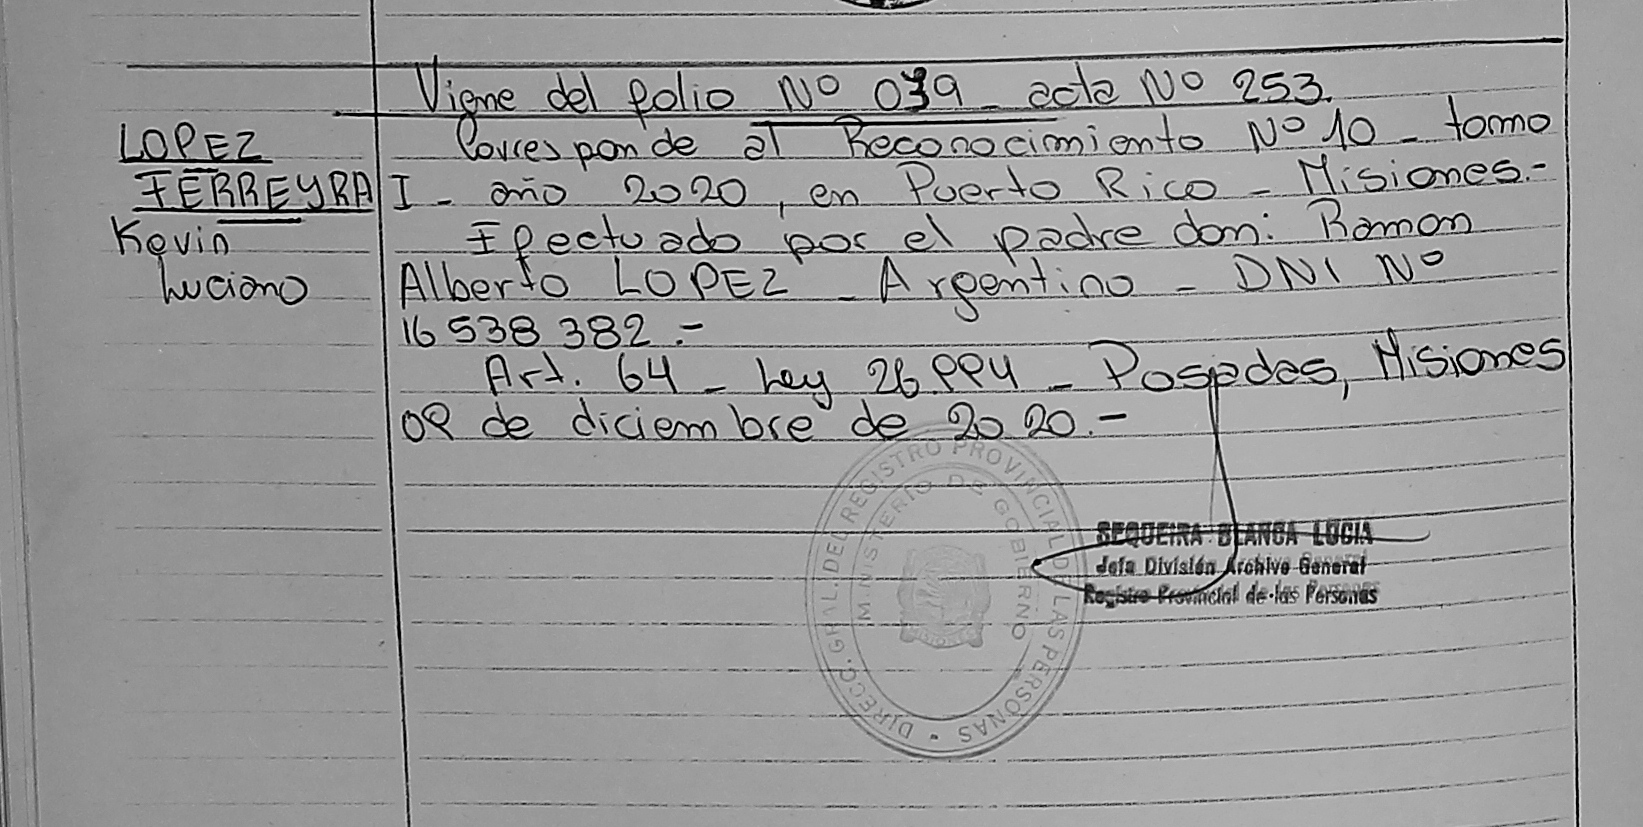 Viene del folio Nº 039 - acta Nº 253.
LOPEZ
FERREYRA
Kevin
Luciano
Corresponde al Reconocimiento Nº 10 - tomo
I - año 2020, en Puerto Rico - Misiones.-
Efectuado por el padre don: Ramon
Alberto LOPEZ - Argentino - DNI Nº
16 538 382.-
Art. 64 - Ley 26.994 - Posadas, Misiones
09 de diciembre de 2020.-
DIRECC. GRAL. DEL REGISTRO PROVINCIAL DE LAS PERSONAS
MINISTERIO DE GOBIERNO
MISIONES
SEQUEIRA BLANCA LUCIA
Jefa División Archivo General
Registro Provincial de las Personas